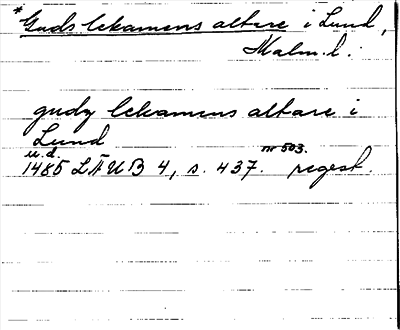 *Guds lekamens altare i Lund,
Malm. l.
gudz lekamens altare i
Lund
u. d. nr 503.
1485 LÄUB 4, s. 437. regest.